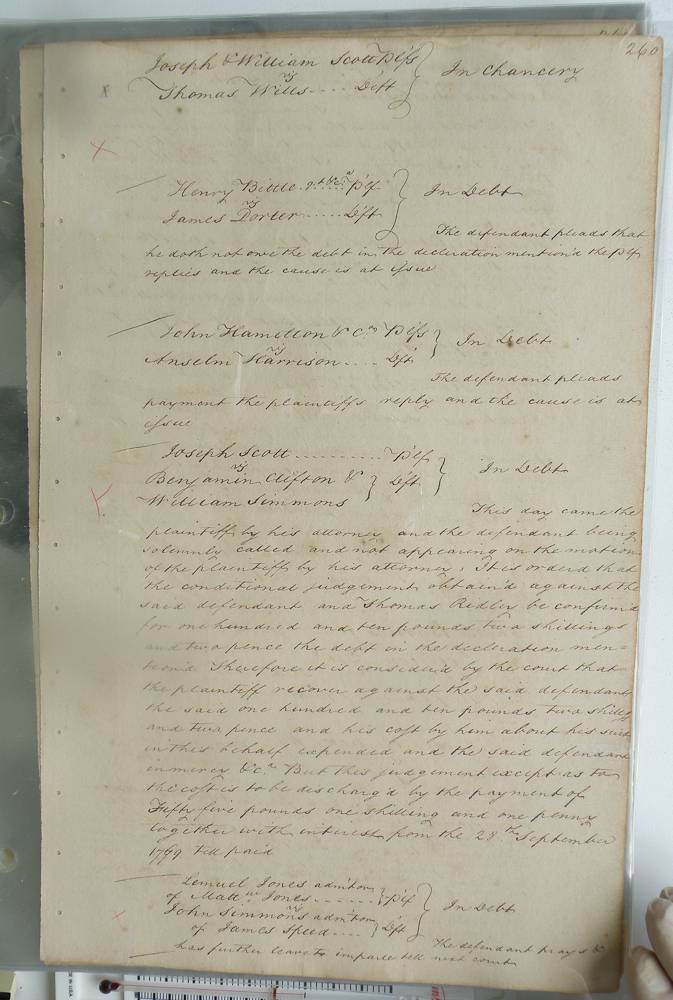 260
Joseph & William Scott Plfs } In Chancery
vs
Thomas Wills .... Deft
Henry Bittle Plf } In Debt
vs
James Porter ..... Deft
The defendant pleads that
he doth not owe the debt in the decleration mention'd the Plf
replies and the cause is at issue
John Hamelton & Co Plfs } In Debt
vs
Anselm Harrison .... Deft
The defendant pleads
payment the plaintiffs reply and the cause is at
issue
Joseph Scott .......... Plf } In Debt
vs
Benjamin Clifton & } Deft
William Simmons
This day came the
plaintiff by his attorney and the defendant being
solemnly called and not appearing on the motion
of the plaintiff by his attorney, It is orderd that
the conditional judgement obtain'd against the
said defendant and Thomas Ridley be confirm'd
for one hundred and ten pounds two shillings
and two pence the debt in the decleration men=
tion'd Therefore it is consider'd by the court that
the plaintiff recover against the said defendants
the said one hundred and ten pounds two shillings
and two pence and his cost by him about his suit
in this behalf expended and the said defendant
in mercy &c. But this judgement except as to
the cost is to be discharg'd by the payment of
Fifty five pounds one shilling and one penny
together with interest from the 28th September
1769 till paid
Lemuel Jones admitor
of Matt Jones ....... } Plf } In Debt
vs
John Simmons admitor
of James Speed .... } Deft
The defendant prays &
has further leave to imparle till next court